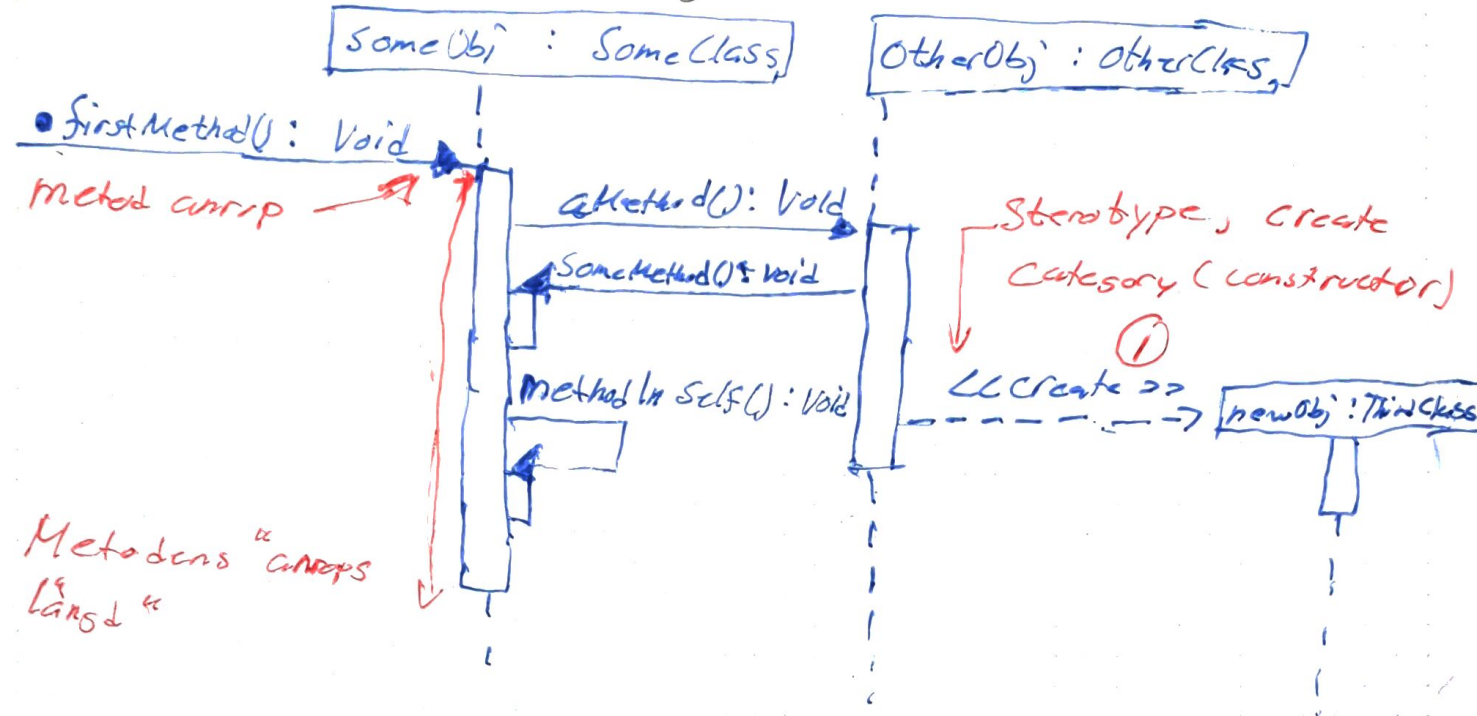 someObj : SomeClass
OtherObj : OtherClass
firstMethod() : Void
metod anrop
aMethod() : Void
Sterotype, create
Category (constructor)
SomeMethod() : void
1
methodInSelf() : Void
<<create>>
newObj : ThirdClass
Metodens "anrops
längd"